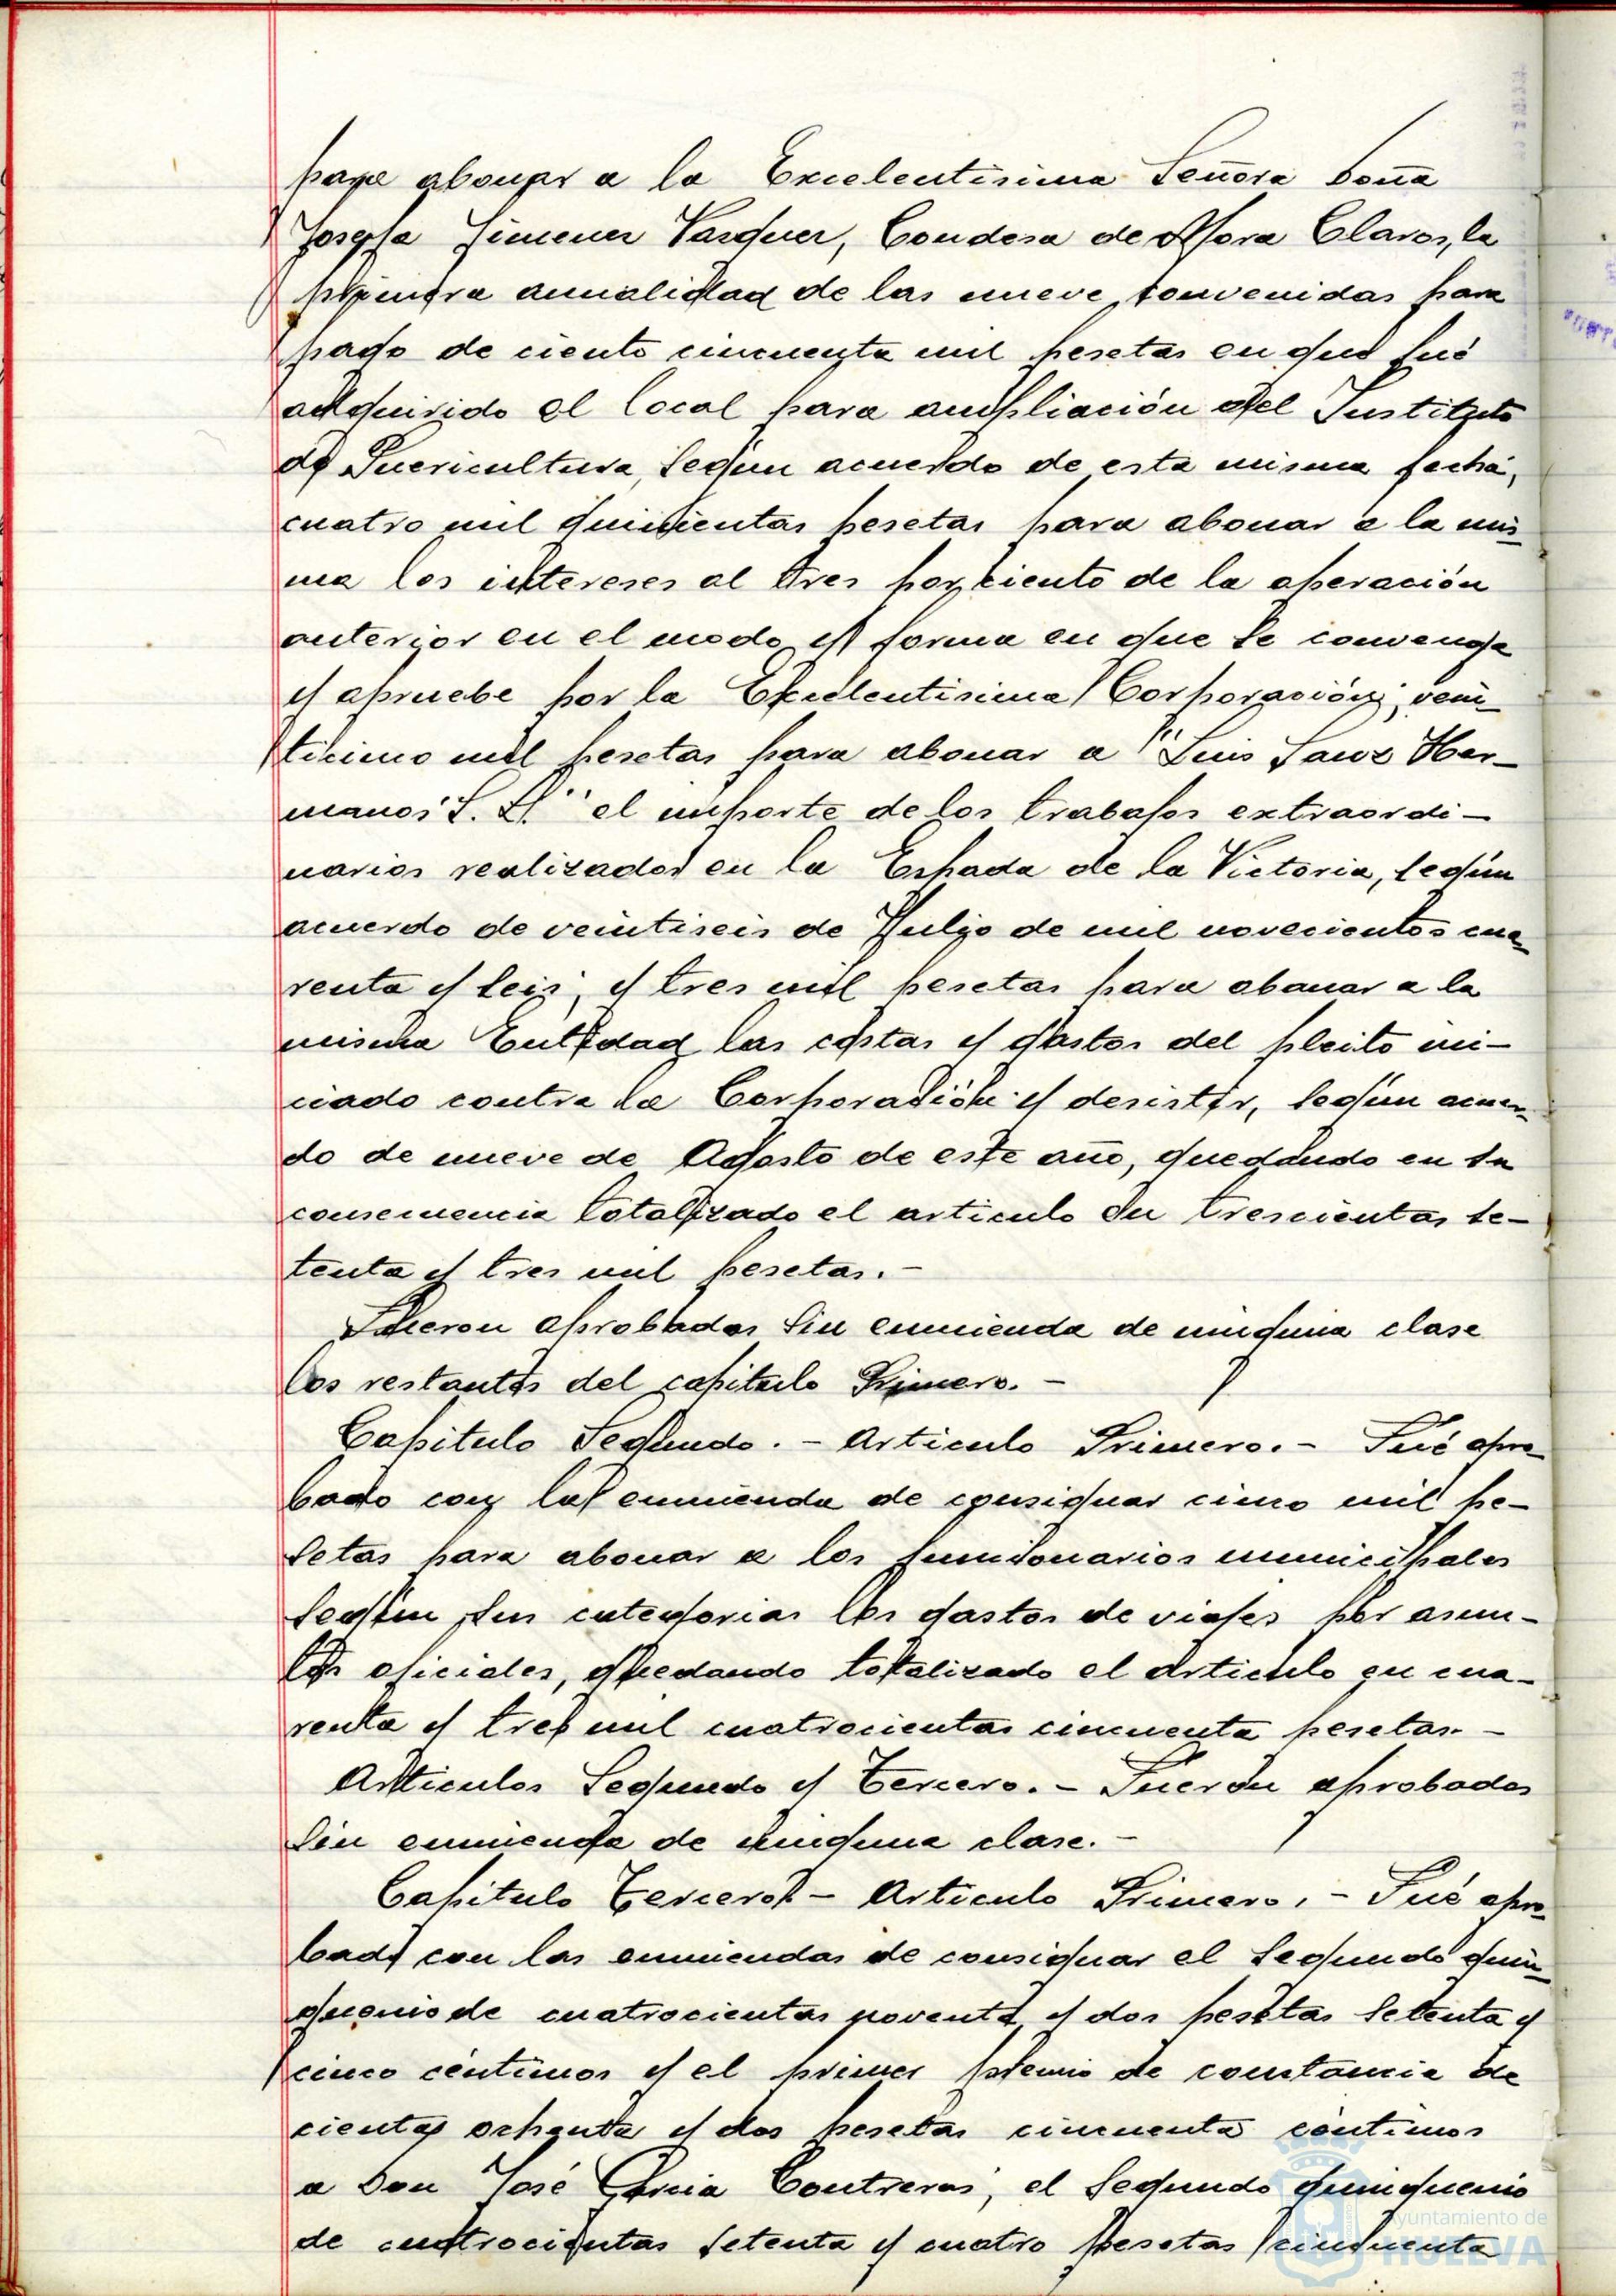 para abonar a la Excelentisima Señora Doña
Josefa Jimenez Vazquez, Condesa de Mora Claros, la
primera anualidad de las nueve convenidas para
pago de ciento cincuenta mil pesetas en que fué
adquirido el local para ampliación del Instituto
de Puericultura, según acuerdo de esta misma fecha;
cuatro mil quinientas pesetas para abonar a la mis-
ma los intereses al tres por ciento de la operación
anterior en el modo y forma en que se convenga
y apruebe por la Excelentisima Corporación; vein-
ticinco mil pesetas para abonar a "Luis Sanz Her-
manos S. L." el importe de los trabajos extraordi-
narios realizados en la Espada de la Victoria, según
acuerdo de veintiseis de Julio de mil novecientos cua-
renta y seis, y tres mil pesetas para abonar a la
misma Entidad las costas y gastos del pleito ini-
ciado contra la Corporación y desistir, según acuer-
do de nueve de Agosto de este año, quedando en su
consecuencia totalizado el articulo en trescientas se-
tenta y tres mil pesetas.-
Fueron aprobados sin enmienda de ninguna clase
los restantes del capitulo Primero.-
Capitulo Segundo.- Articulo Primero.- Fué apro-
bado con la enmienda de consignar cinco mil pe-
setas para abonar a los funcionarios municipales
según sus categorias los gastos de viajes por asun-
tos oficiales, quedando totalizado el articulo en cua-
renta y tres mil cuatrocientas cincuenta pesetas.-
Articulos Segundo y Tercero.- Fueron aprobados
sin enmienda de ninguna clase.-
Capitulo Tercero.- Articulo Primero.- Fué apro-
bado con las enmiendas de consignar el segundo quin-
quenio de cuatrocientas noventa y dos pesetas setenta y
cinco céntimos y el primer premio de constancia de
cientas ochenta y dos pesetas cincuenta céntimos
a Don José Garcia Contreras; el segundo quinquenio
de cuatrocientas setenta y cuatro pesetas cincuenta
Ayuntamiento de
HUELVA